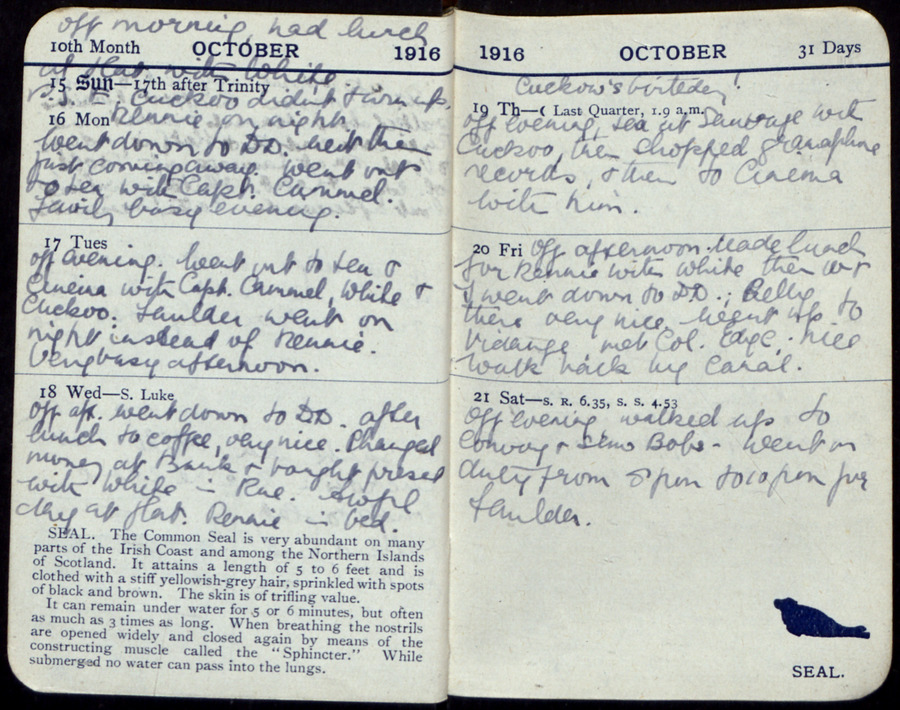 off morning, had lunch
10th Month OCTOBER 1916
at flat with White
15 Sun—17th after Trinity
Cuckoo didn't turn up.
16 Mon Rennie on night.
Went down to DD. met them
just coming away. Went out
to tea with Capt. Cammel.
Fairly busy evening.
17 Tues
off evening. Went out to tea &
Cinema with Capt. Cammel, White &
Cuckoo. Faulder went on
night instead of Rennie.
Very busy afternoon.
18 Wed—S. Luke
Off aft. went down to DD. after
lunch to coffee, very nice. Changed
money at Bank & bought present
with White in Rue. Awful
day at flat. Rennie in bed.
SEAL. The Common Seal is very abundant on many
parts of the Irish Coast and among the Northern Islands
of Scotland. It attains a length of 5 to 6 feet and is
clothed with a stiff yellowish-grey hair, sprinkled with spots
of black and brown. The skin is of trifling value.
It can remain under water for 5 or 6 minutes, but often
as much as 3 times as long. When breathing the nostrils
are opened widely and closed again by means of the
constructing muscle called the "Sphincter." While
submerged no water can pass into the lungs.
1916 OCTOBER 31 Days
Cuckoo's birthday!
19 Th—☾ Last Quarter, 1.9 a.m.
off evening, tea at Sauvage with
Cuckoo, then shopped gramaphone
records, & then to Cinema
with him.
20 Fri Off afternoon. Made lunch
for Rennie with White then
I went down to DD.; Belly
there very nice, went up to
met Col. Edge. nice
walk back by Canal.
21 Sat—S. R. 6.35, S. S. 4.53
Off evening, walked up to
Conway & Bobs. went on
duty from 8 pm to 10 pm for
Faulder.
SEAL.